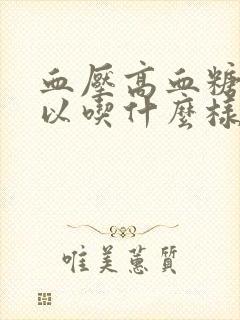 血壓高血糖
以喫什麼樣
唯美蕙質